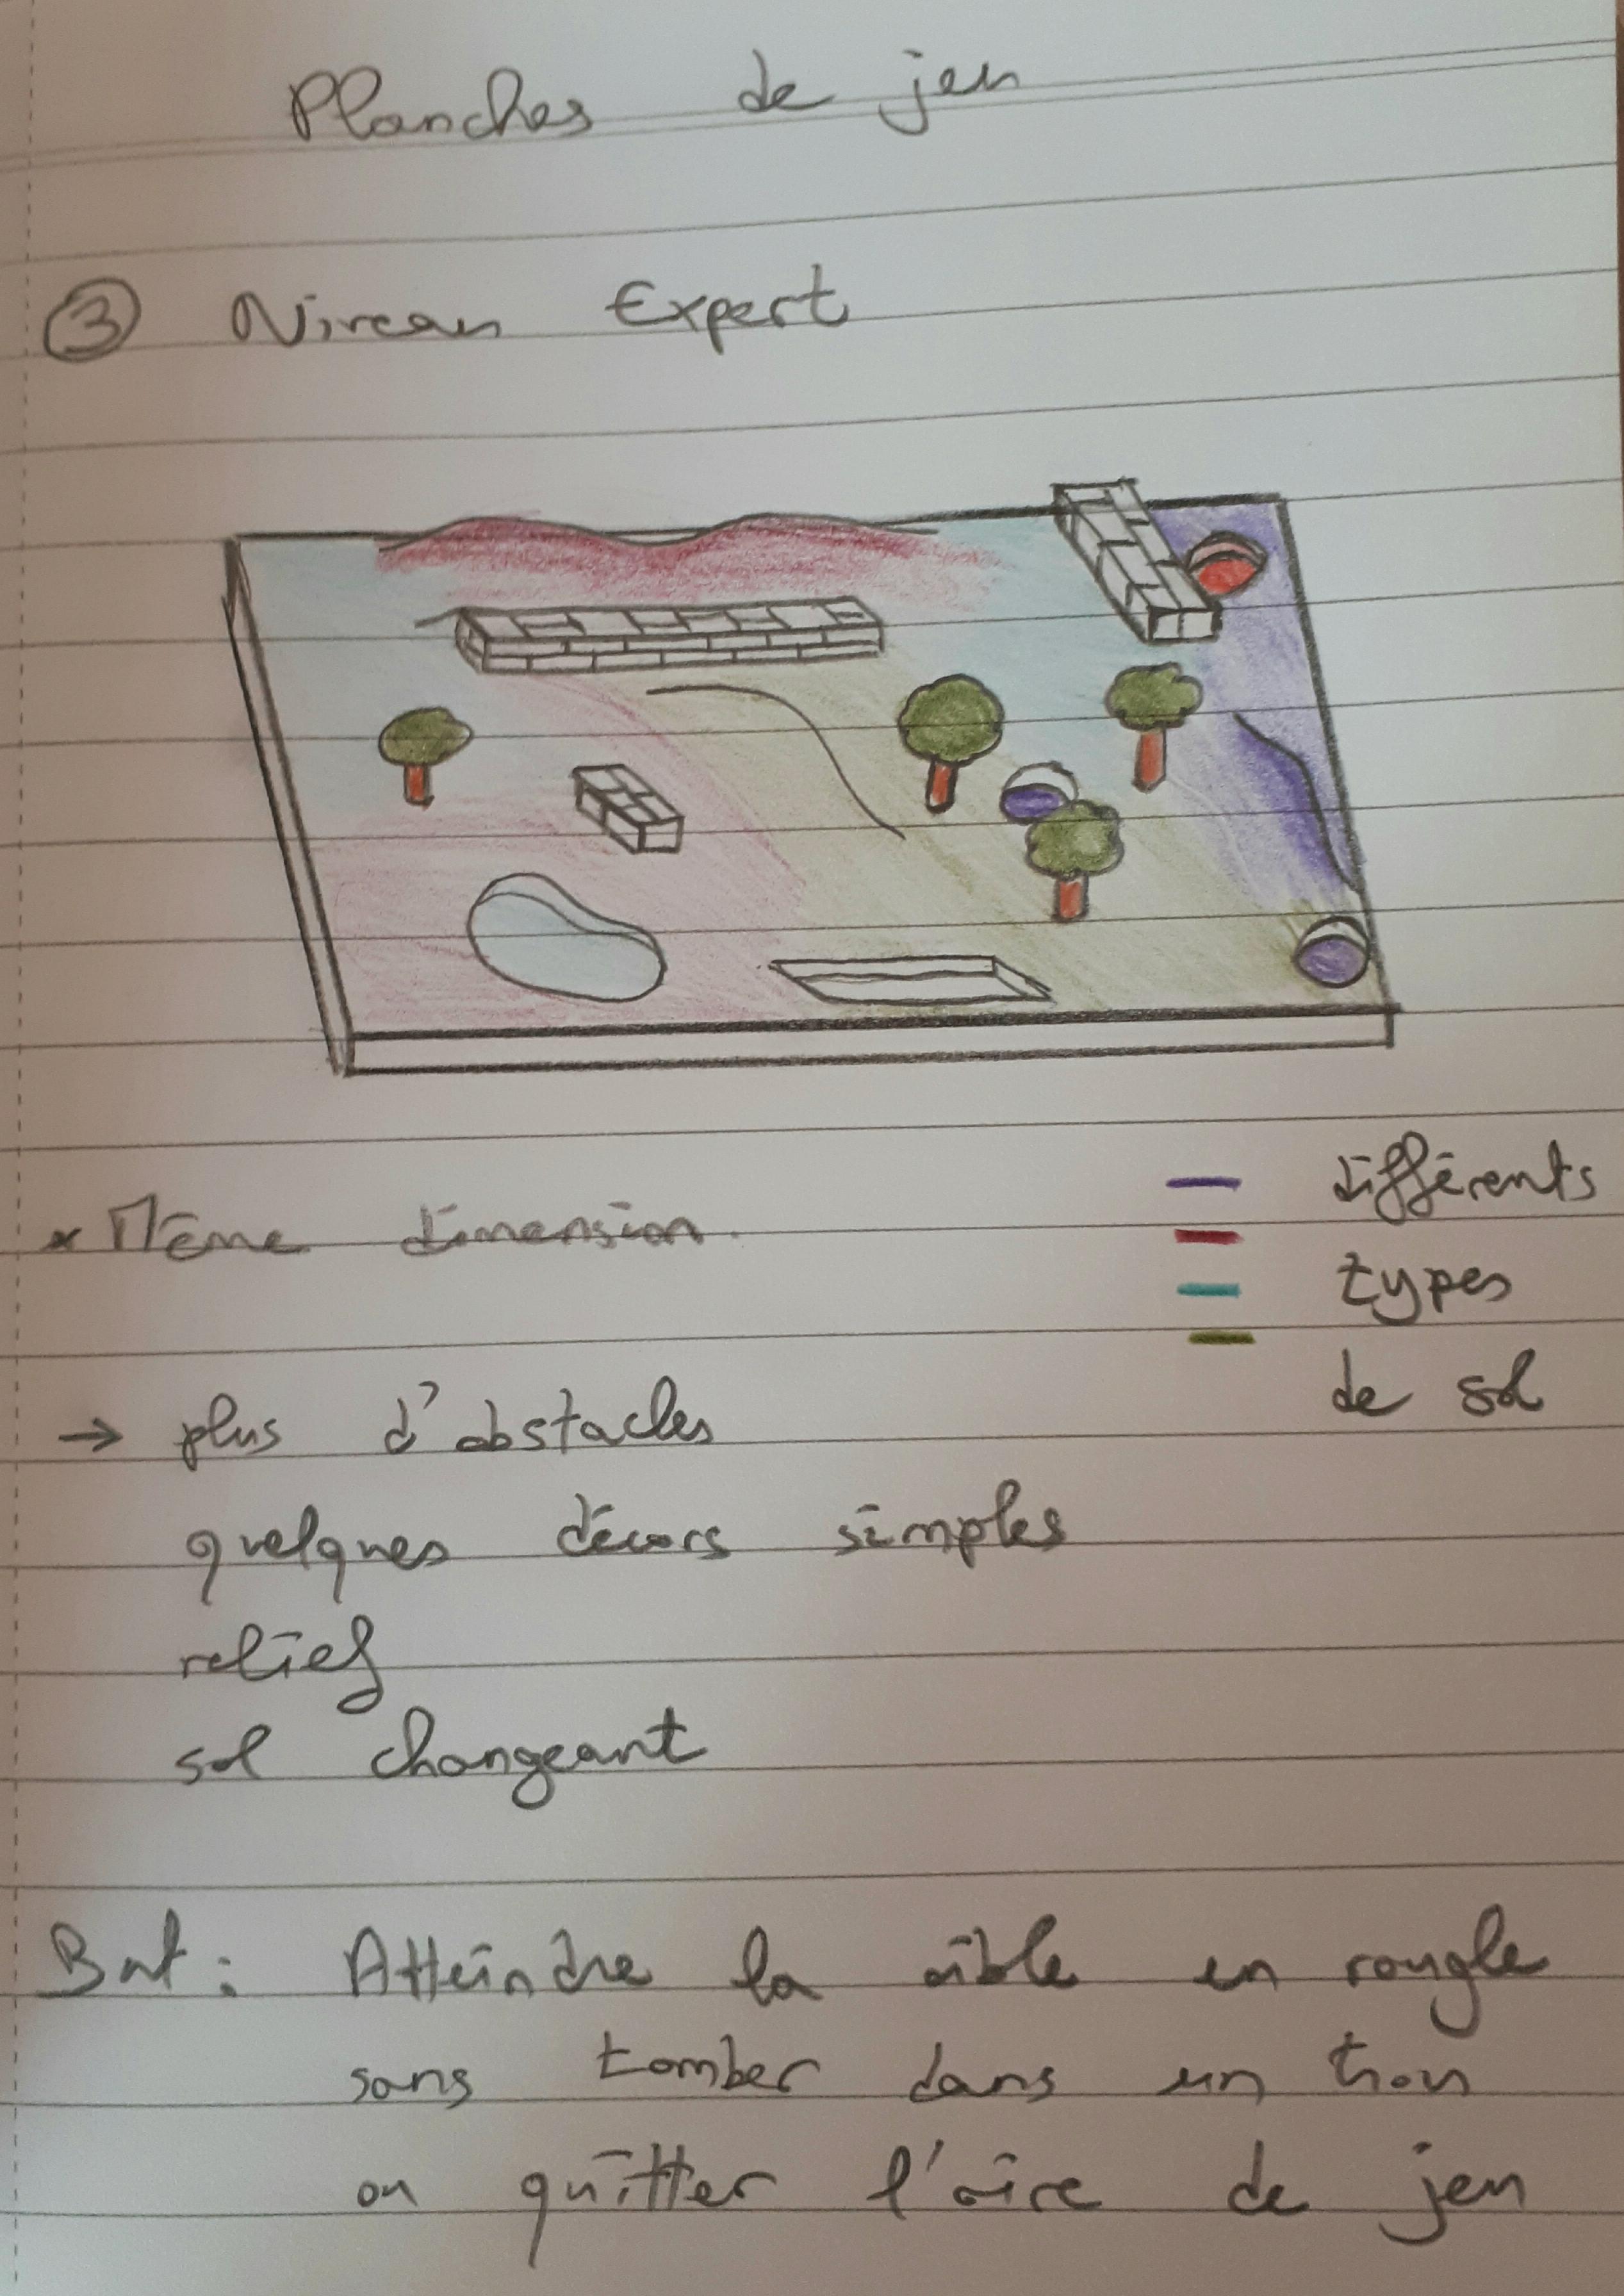 Planches de jeu
③ Niveau Expert
* Même dimension.
différents
types
de sol
→ plus d'obstacles
quelques décors simples
relief
sol changeant
But : Atteindre la cible en rougle
sans tomber dans un trou
ou quitter l'aire de jeu